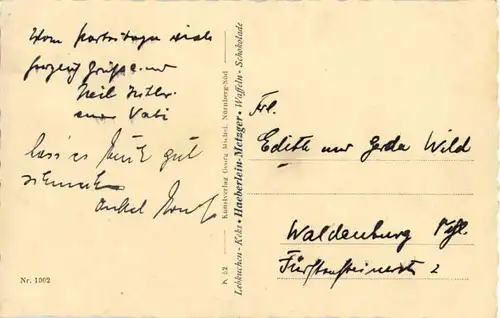 Vom Parteitage viele
herzlich Grüsse und
Heil Hitler.
euer Vati
lass es Euch gut
schmecken
Onkel
Nr. 1002
K 52 Kunstverlag Georg Michel, Nürnberg-Süd
Lebkuchen - Keks • Haeberlein-Metzger • Waffeln - Schokolade
Frl.
Edith und Gerda Wild
Waldenburg
Fürstensteinerstr 2